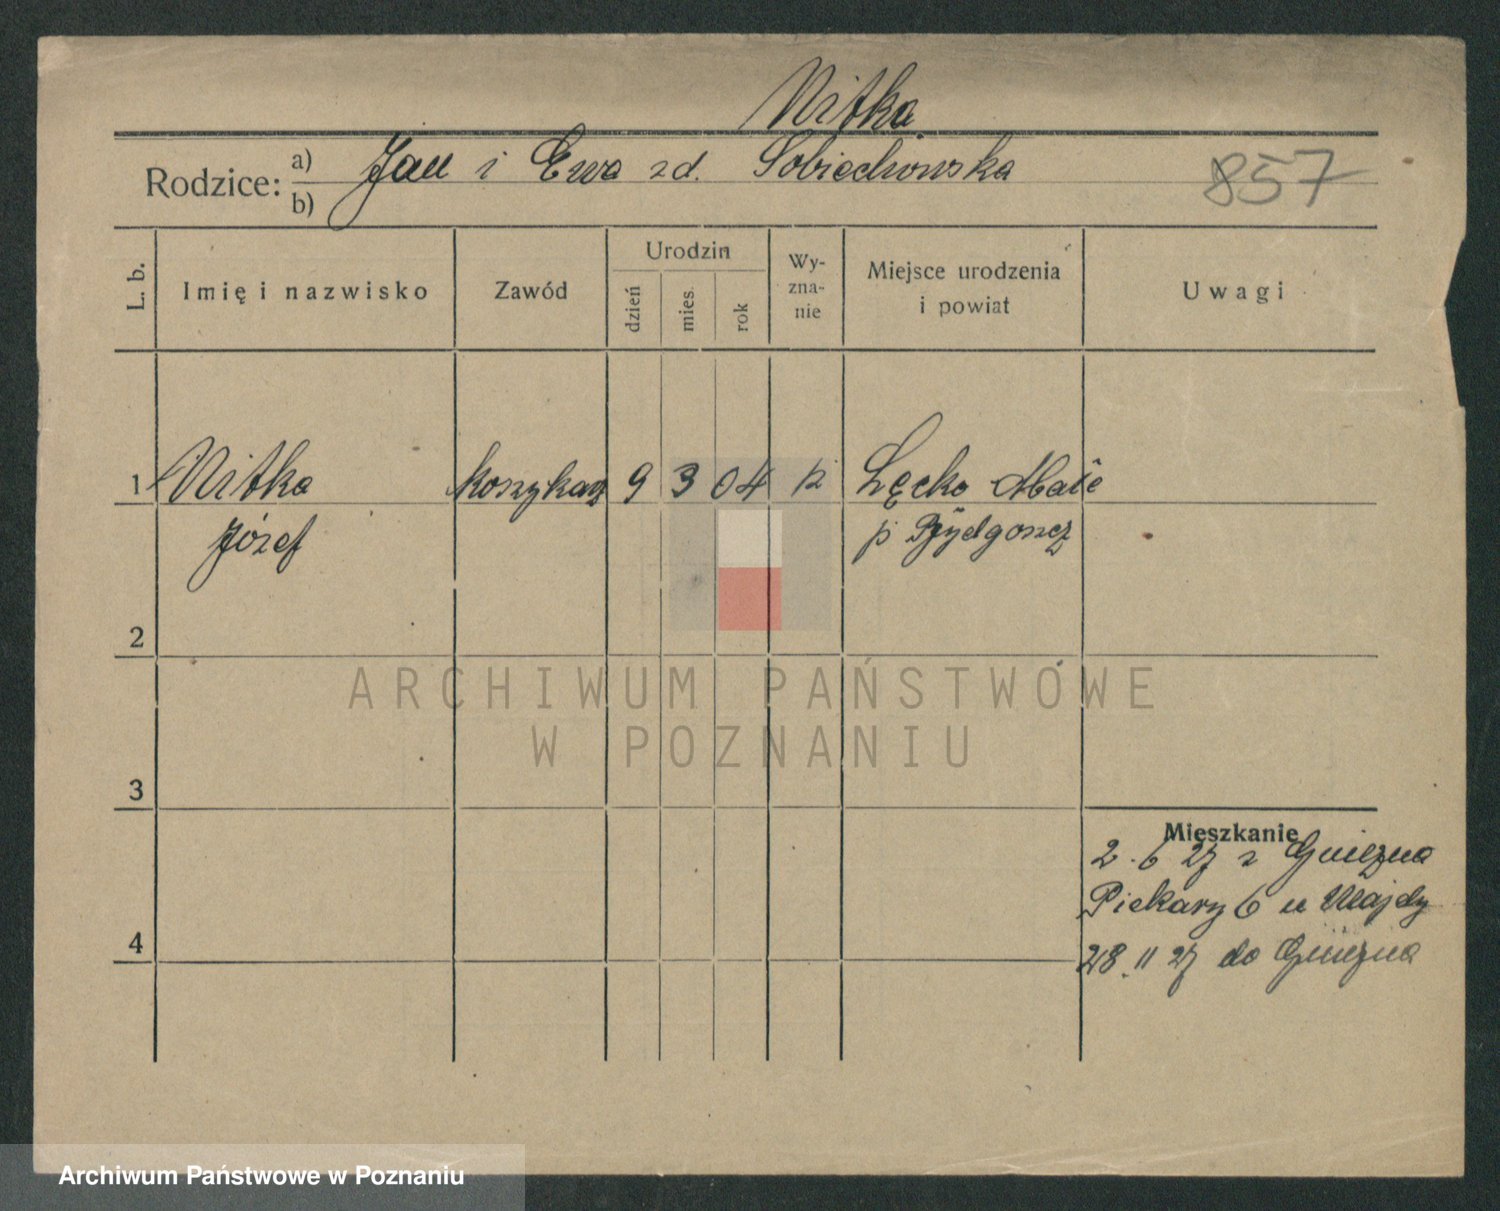 Nitka
Rodzice: a) Jan i Ewa zd. Sobiechowska
b)
857
L. b. Imię i nazwisko Zawód Urodzin dzień mies. rok Wyznanie Miejsce urodzenia i powiat Uwagi
1 Nitka koszykarz 9 3 04 Łęcko Małe
Józef p Bydgoszcz
2
ARCHIWUM PAŃSTWOWE
W POZNANIU
3
Mieszkanie
2. 6 27 z Gniezna
Piekary 6 u Majdy
4
28. 11 27 do Gniezna
Archiwum Państwowe w Poznaniu